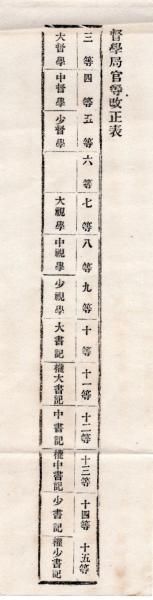 督學局官等改正表
三等 四等 五等 六等 七等 八等 九等 十等 十一等 十二等 十三等 十四等 十五等
大督學 中督學 少督學 大視學 中視學 少視學 大書記 權大書記 中書記 權中書記 少書記 權少書記